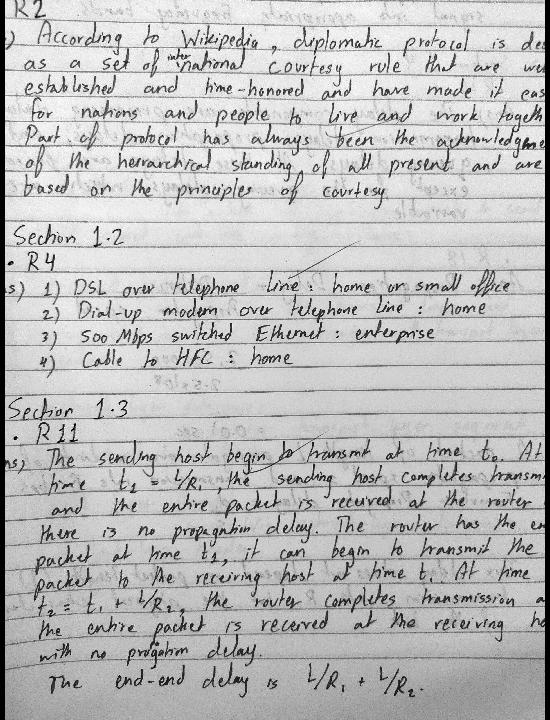 R2
) According to Wikipedia, diplomatic protocol is des
as a set of international courtesy rule that are we
established and time-honored and have made it eas
for nations and people to live and work togeth
Part of protocol has always been the acknowledgme
of the heirarchical standing of all present and are
based on the principles of courtesy.
Section 1.2
• R4
s) 1) DSL over telephone line : home or small office
2) Dial-up modem over telephone line : home
3) 500 Mbps switched Ethernet : enterprise
4) Cable to HFC : home
Section 1.3
• R11
ns) The sending host begin to transmit at time t0. At
time t1 = L/R1, the sending host completes transm
and the entire packet is received at the router
there is no propagation delay. The router has the en
packet at time t1, it can begin to transmit the
packet to the receiving host at time t1. At time
t2 = t1 + L/R2, the router completes transmission a
the entire packet is received at the receiving ho
with no progation delay.
The end-end delay is L/R1 + L/R2.